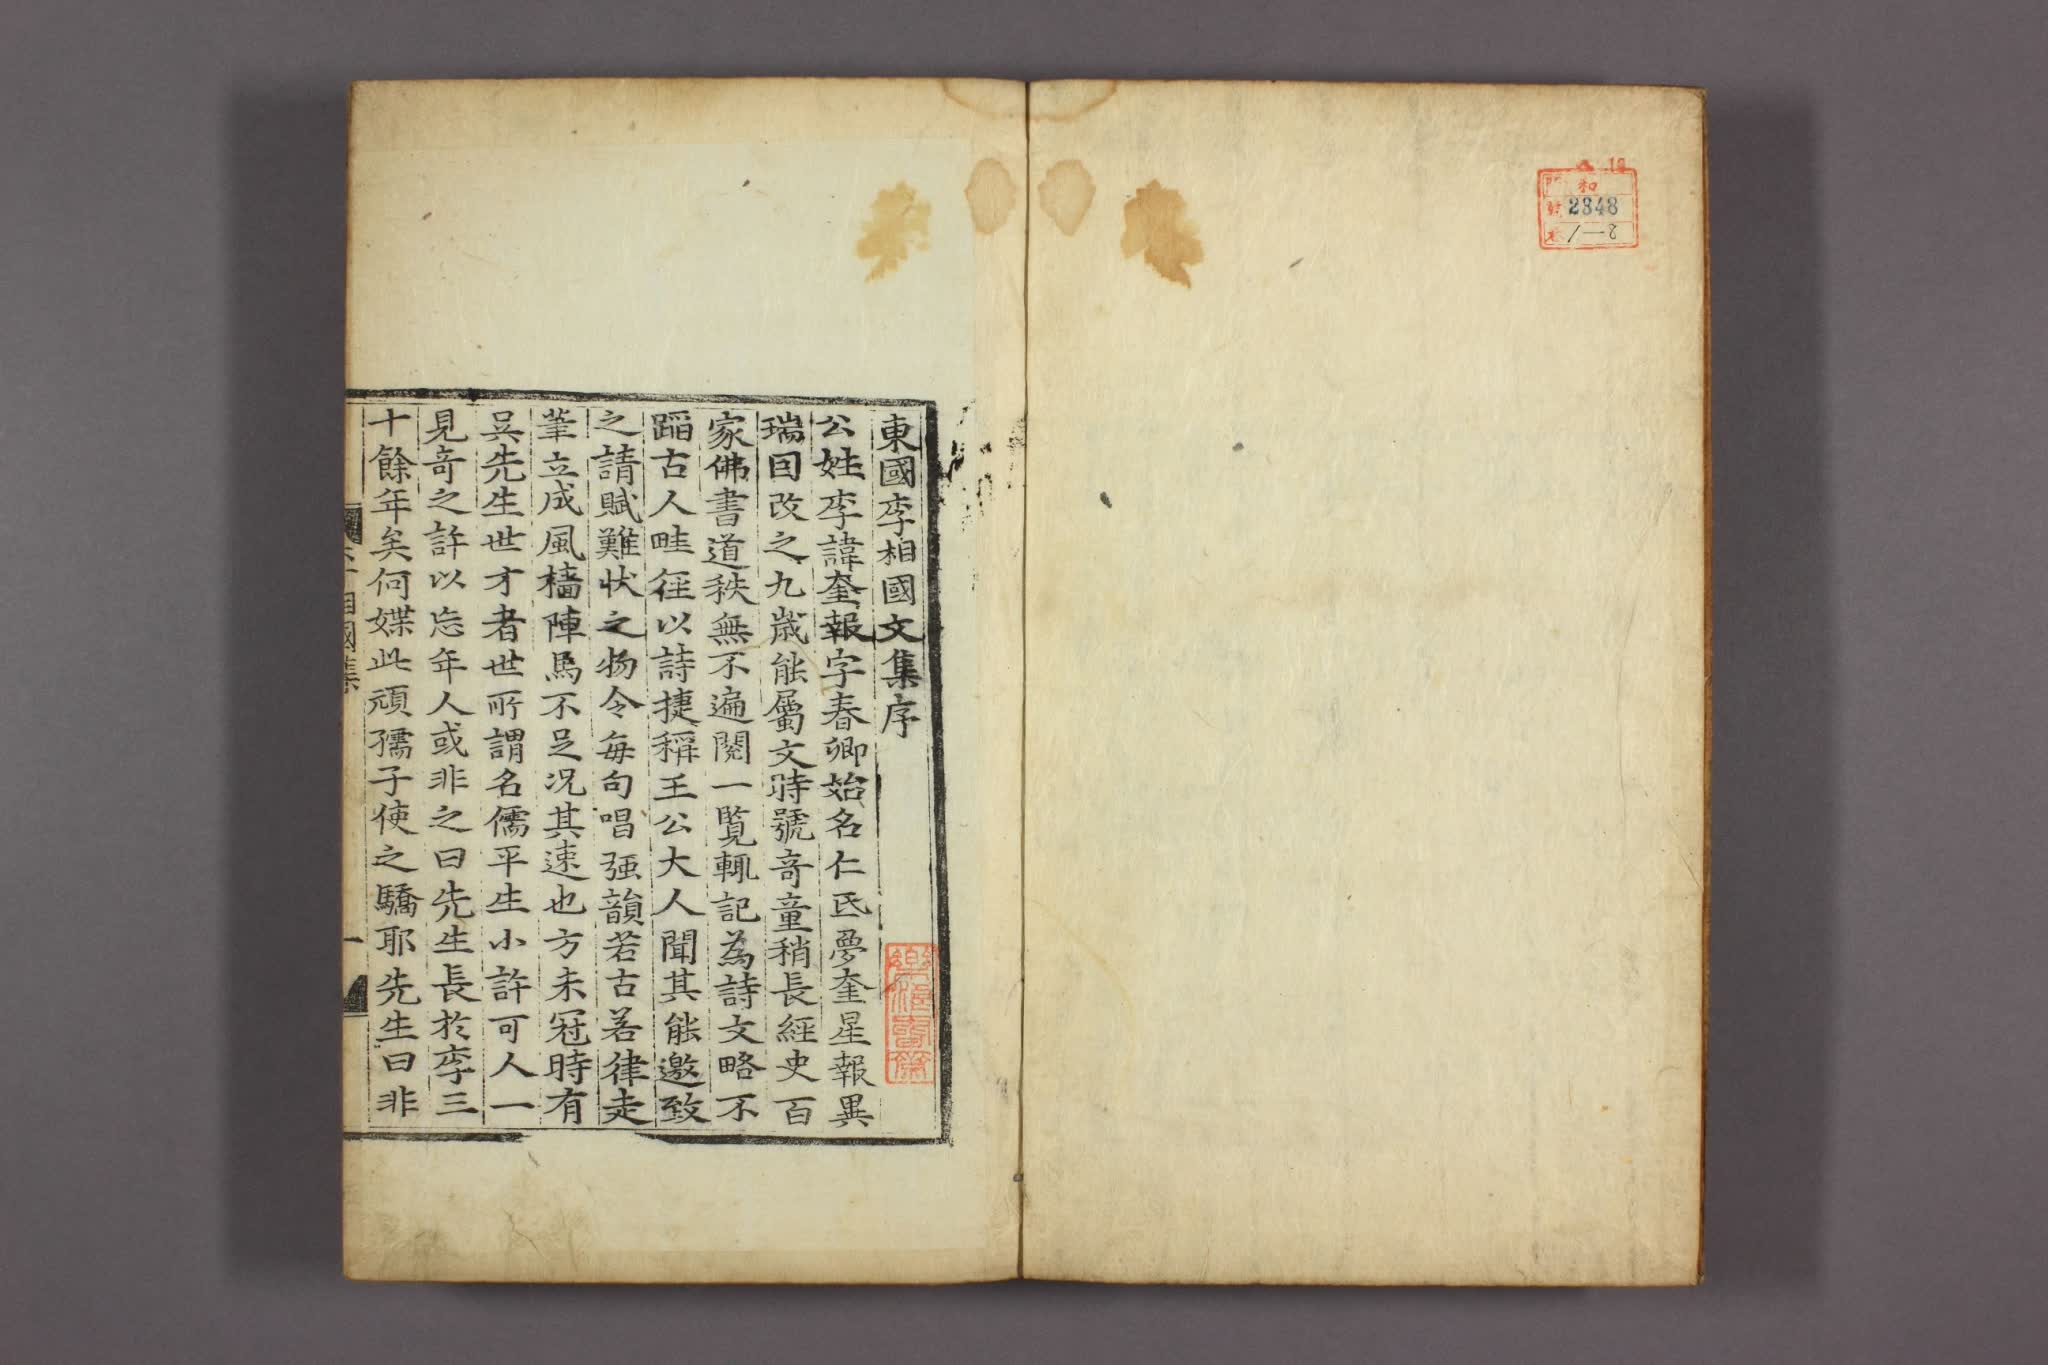 和
2348
1—2
東國李相國文集序
公姓李諱奎報字春卿始名仁氐夢奎星報異
瑞因改之九歲能屬文時號奇童稍長經史百
家佛書道秩無不遍閱一覽輒記為詩文略不
蹈古人畦徑以詩捷稱王公大人聞其能邀致
之請賦難狀之物令每句唱强韻若古若律走
筆立成風檣陣馬不足况其速也方未冠時有
吳先生世才者世所謂名儒平生小許可人一
見奇之許以忘年人或非之曰先生長於李三
十餘年矣何媟此頑孺子使之驕耶先生曰非
相國集
一